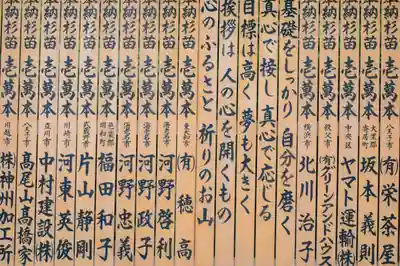 納杉苗 壱萬本 八王子市 (有)栄茶屋
納杉苗 壱萬本 大里郡寄居町 坂本義則
納杉苗 壱萬本 中央区 ヤマト運輸(株)
納杉苗 壱萬本 秩父市 (有)グリーンアンドハウス
納杉苗 壱萬本 横浜市 北川治子
基礎をしっかり 自分を磨く
真心で接し 真心で応じる
目標は高く 夢も大きく
挨拶は 人の心を開くもの
心のふるさと 祈りのお山
納杉苗 壱萬本 (有)穂高
納杉苗 壱萬本 河野啓利
納杉苗 壱萬本 河野政子
納杉苗 壱萬本 河野忠義
納杉苗 壱萬本 福田和子
納杉苗 壱萬本 片山静剛
納杉苗 壱萬本 川崎市 河東英俊
納杉苗 壱萬本 立川市 中村建設(株)
納杉苗 壱萬本 八王子市 髙尾山髙橋家
納杉苗 壱萬本 川越市 株神州加工所